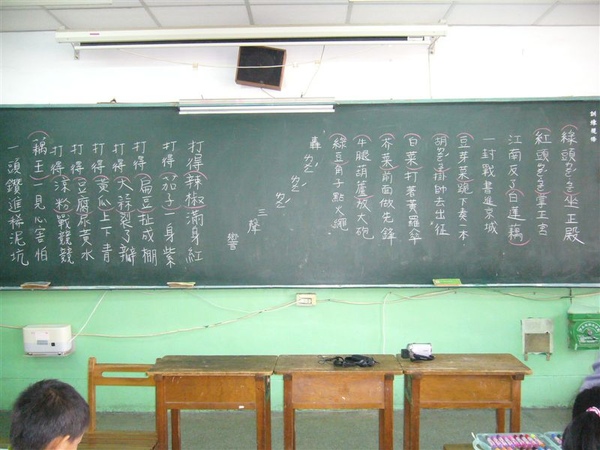 綠頭坐正殿
紅頭掌正宮
江南反了白蓮藕
一封戰書進京城
豆芽菜跪下奏一本
胡掛帥去出征
白菜打著黃羅傘
芥菜前面做先鋒
牛腿葫蘆放大砲
綠豆角子點火繩
轟
三聲
響
打得辣椒滿身紅
打得茄子一身紫
打得扁豆扯成棚
打得大蒜裂了瓣
打得黃瓜上下青
打得豆腐尿黃水
打得涼粉戰兢兢
藕王一見心害怕
一頭鑽進稀泥坑